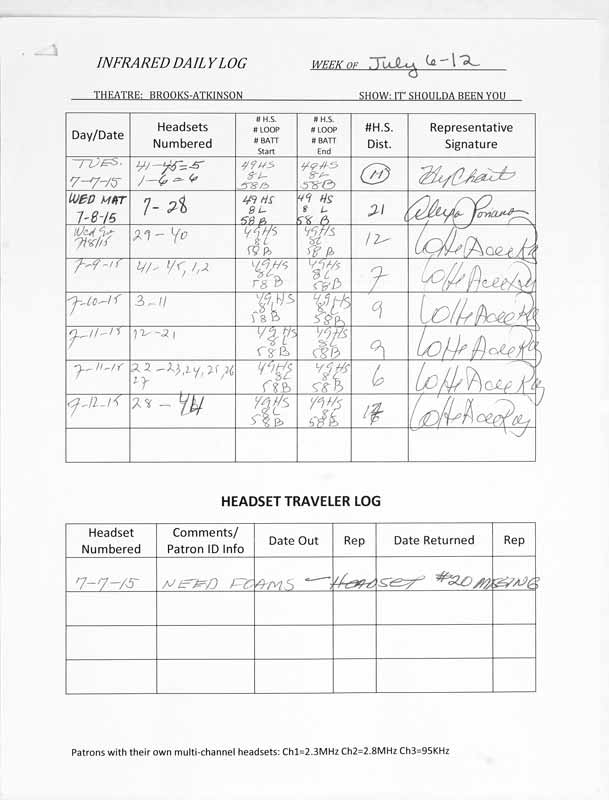 INFRARED DAILY LOG WEEK OF July 6-12
THEATRE: BROOKS-ATKINSON SHOW: IT' SHOULDA BEEN YOU
Day/Date Headsets Numbered # H.S. # LOOP # BATT Start # H.S. # LOOP # BATT End #H.S. Dist. Representative Signature
TUES. 7-7-15 41-45=5 1-6=6 49HS 8L 58B 49HS 8L 58B 11
WED MAT 7-8-15 7-28 49 HS 8L 58B 49 HS 8 L 58 B 21
7/8/15 29-40 49HS 8L 58B 49HS 8L 58B 12
7-9-15 41-45,1,2 49,HS 8L 58B 49HS 8L 58B 7
7-10-15 3-11 49,HS 8L 58B 49,HS 8L 58B 9
7-11-15 12-21 49 HS 8L 58B 49HS 8L 58B 9
7-11-15 22-23,24,25,26 27 49HS 8L 58B 49HS 8L 58B 6
7-12-15 28-44 49HS 8L 58B 49HS 8L 58B
HEADSET TRAVELER LOG
Headset Numbered Comments/ Patron ID Info Date Out Rep Date Returned Rep
7-7-15 NEED FOAMS - HEADSET #20 MISSING
Patrons with their own multi-channel headsets: Ch1=2.3MHz Ch2=2.8MHz Ch3=95KHz